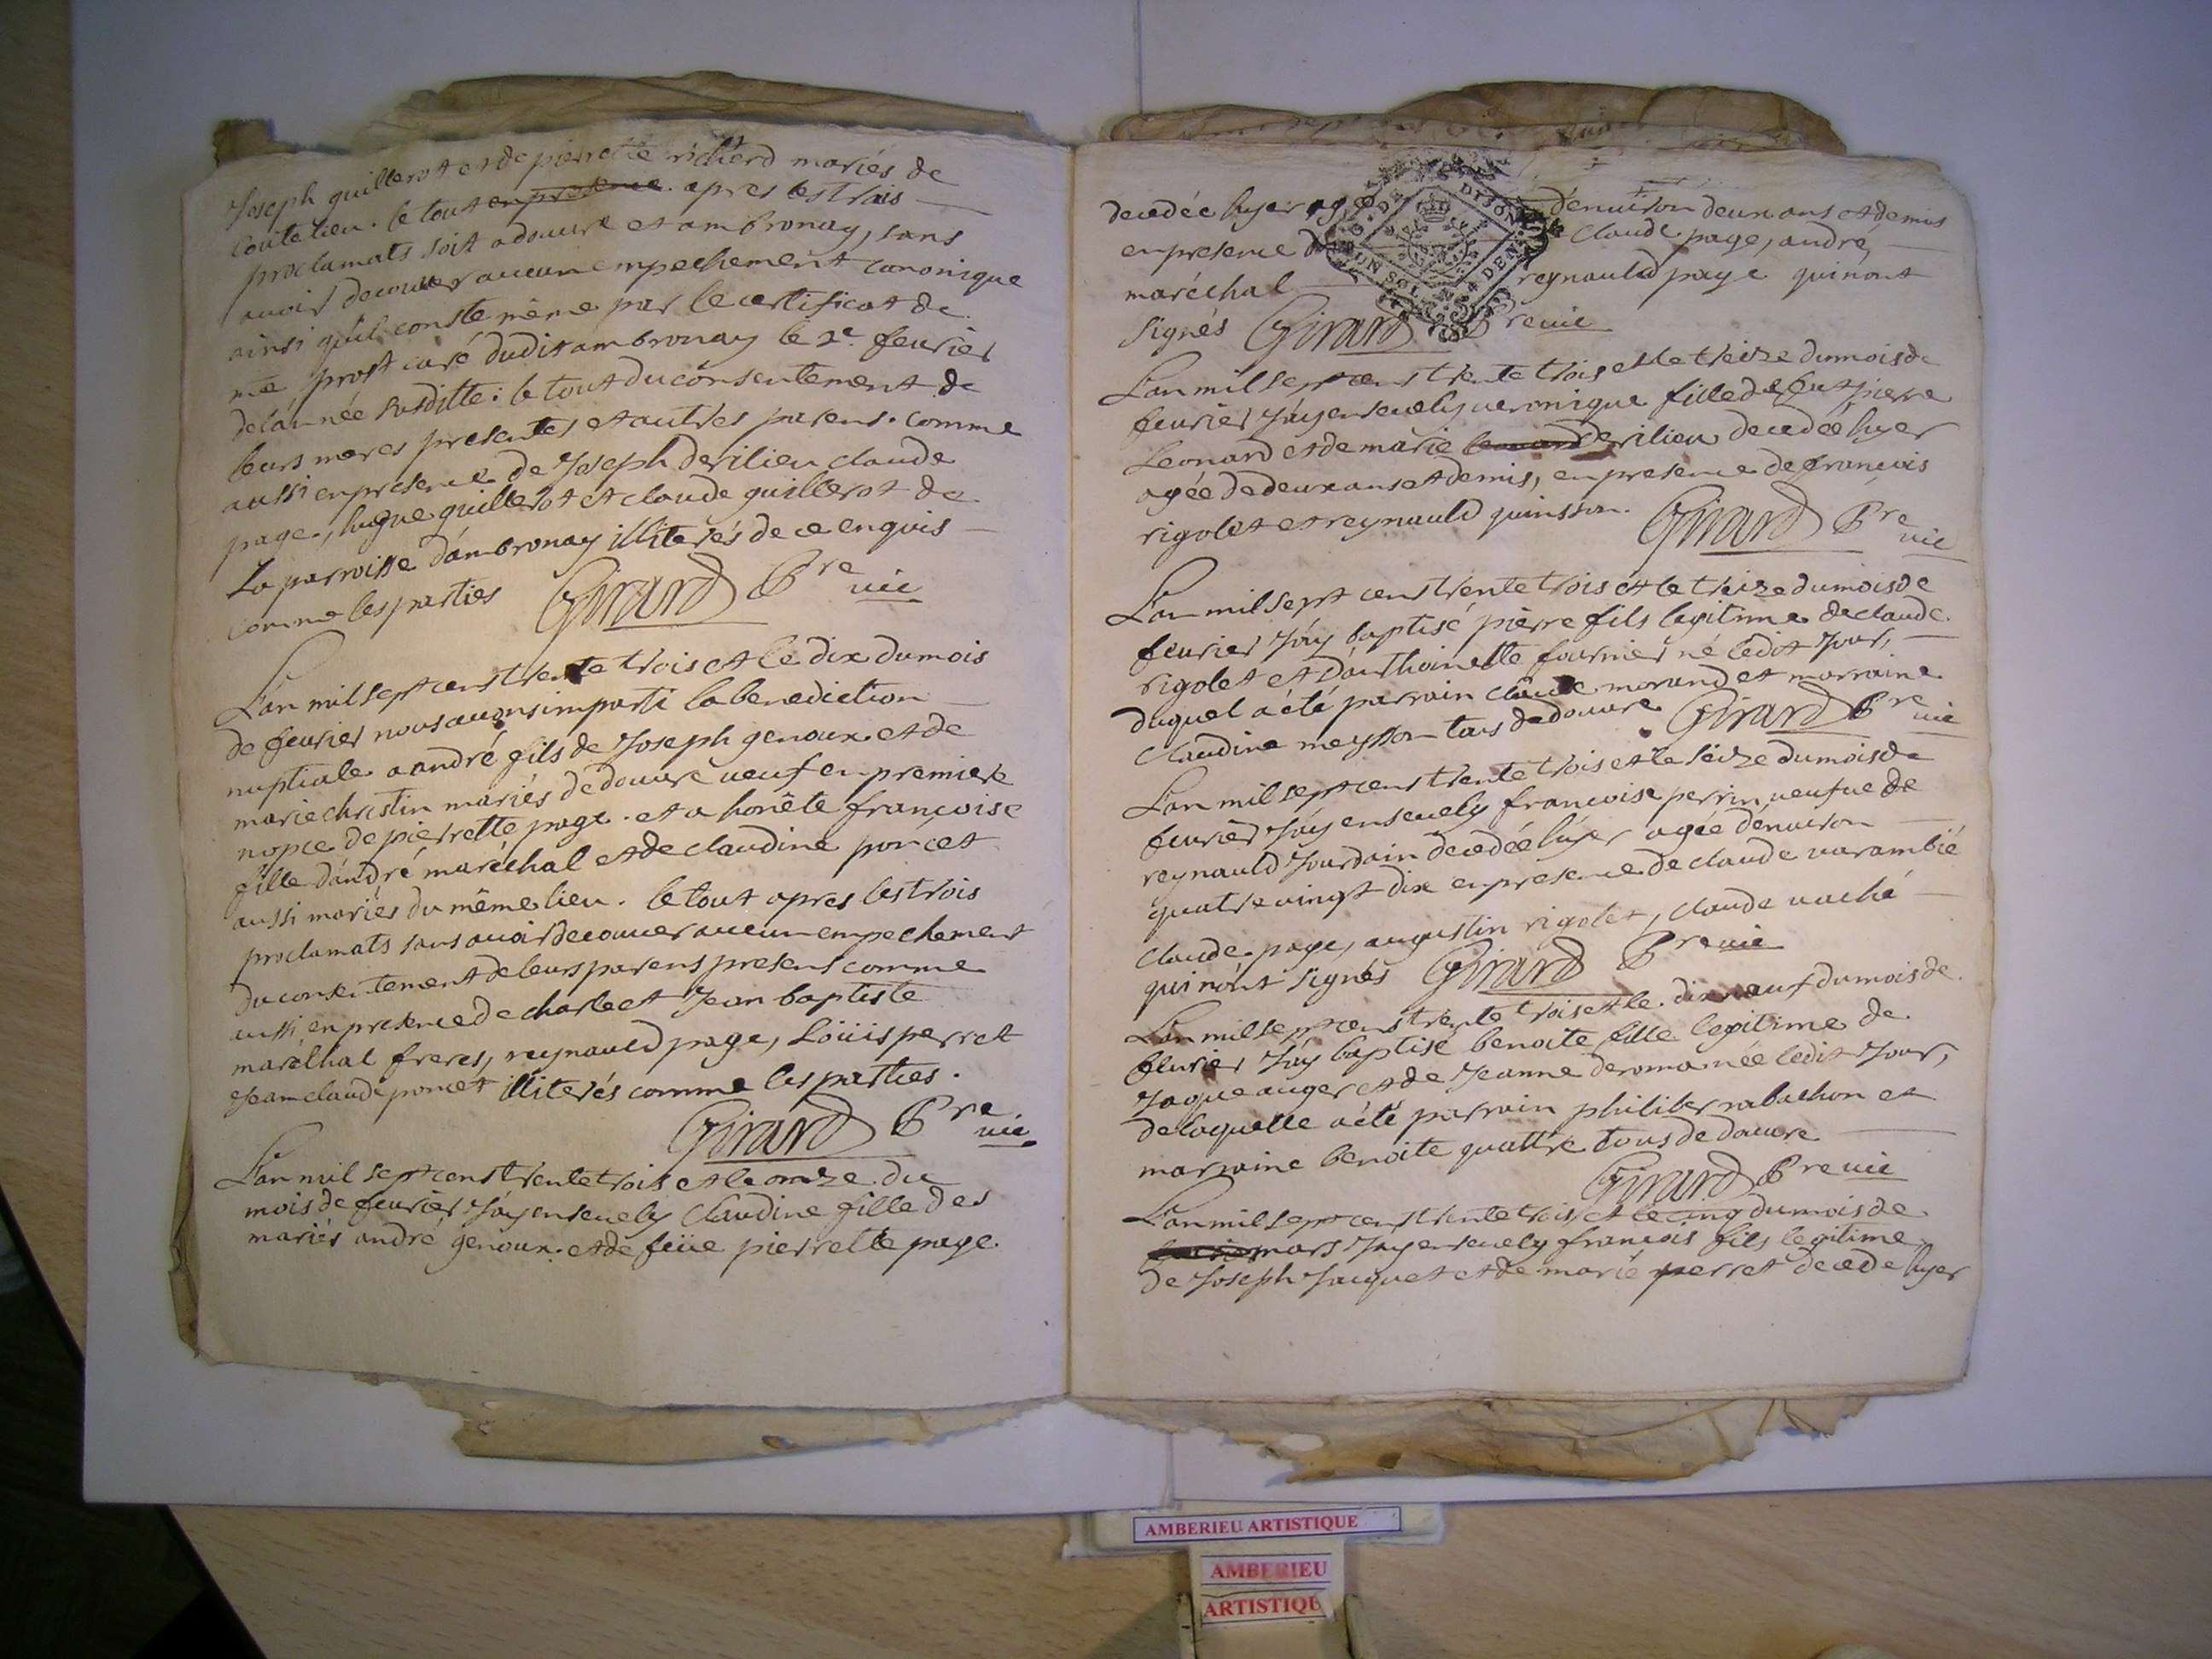 Joseph guillerot et de pierrette richerd mariés de
coutelieu. le tout en presence. apres les trois
proclamats soit a douvre et ambronay, sans
avoir decouver aucun empechement canonique
ainsi quil conste même par le certificat de
me prost curé dudit ambronay le 2e. feurier
de lánnée susditte: le tout du consentement de
leurs meres presentes et autres parens. comme
aussi en presence de Joseph derilieu claude
page, hugue guillerot et claude guillerot de
la parroisse dámbronay illiterés de ce enquis
comme les parties Girard Pre vic
Lan mil sept cens trente trois et le dix du mois
de feurier nous auons imparti la benediction
nuptiale a andré fils de Joseph genoux et de
marie christin mariés de douure ueuf en premiere
nopce de pierrette page. et a honête francoise
fille dándré maréchal et de claudine poncet
aussi mariés du même lieu. le tout apres les trois
proclamats sans auoir decouuer aucun empechement
du consentement de leurs parens presens comme
aussi en presence de charle et Jean baptiste
maréchal freres, reynauld page, Loüis perret
Jean claude poncet illiterés comme les parties.
Girard Pre vic.
Lan mil sept cens trente trois et le onze du
mois de feurier Jáy enseuely Claudine fille des
mariés andré genoux. et de feüe pierrette page
decedée hyer agée dénuiron deux ans et demis
en presence de claude page, andré,
maréchal reynauld page qui nont
signés Girard Pre vic
DIJON
UN SOL
4 DEN
Lan mil sept cens trente trois et le treize du mois de
feurier Jáy enseuely ueronique fille de feut pierre
Leonard et de marie derilieu decedée hyer
agée de deux ans et demis, en presence de francois
rigolet et reynauld quinsson. Girard Pre vic
Lan mil sept cens trente trois et le treize du mois de
feurier Jáy baptisé pierre fils legitime de claude
rigolet et dánthoinette fournier né ledit Jour,
duquel a été parrain claude morand et marraine
claudine meysson tous de douure Girard Pre vic
Lan mil sept cens trente trois et le séize du mois de
feurier Jáy enseuely francoise perrin ueufue de
reynauld Jourdain decedée hyer agée dénuiron
quatre vingt dix en presence de claude varambié
claude page, augustin rigolet, claude vaché
qui nónt signés Girard Pre vic
Lan mil sept cens trente trois et le dix neuf du mois de
feurier Jáy baptisé benoite fille legitime de
Jaque auger et de Jeanne deroma née ledit Jour,
de laquelle a été parrain philiber rabuchon et
marraine benoite quattre tous de douure
Girard Pre vic
Lan mil sept cens trente trois et le cinq du mois de
mars Jay enseuely francois fils legitime
de Joseph Jacquet et de marie perret decede hyer
AMBERIEU ARTISTIQUE
AMBERIEU
ARTISTIQU